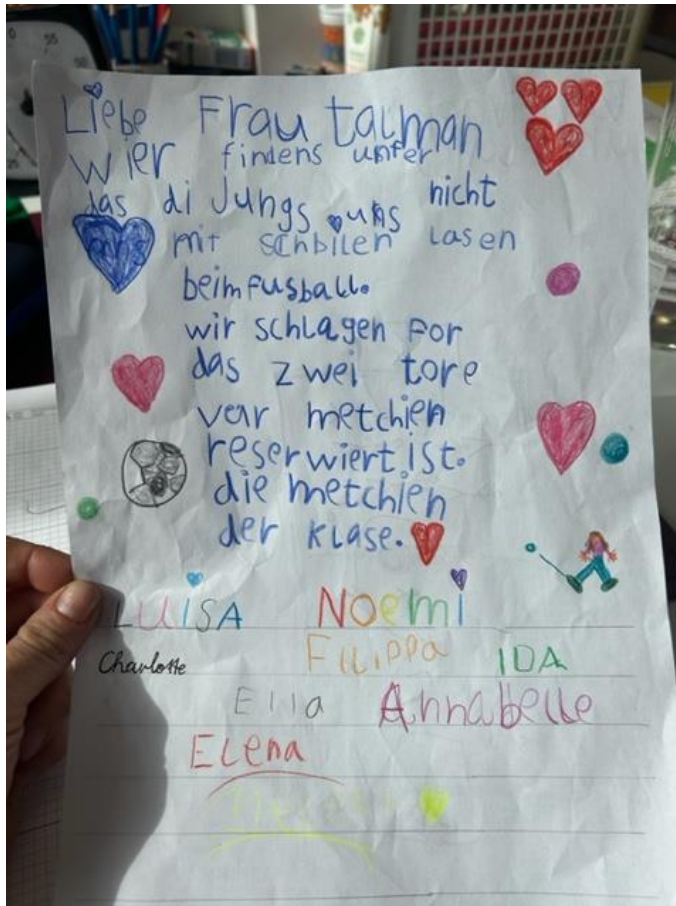 Liebe Frau talman
wier findens unfer
das di Jungs uns nicht
mit schbilen lasen
beim fusball.
wir schlagen for
das zwei tore
var metchien
reserwiert ist.
die metchien
der klase.
LUISA Noemi
Charlotte Filippa IDA
Ella Annabelle
Elena